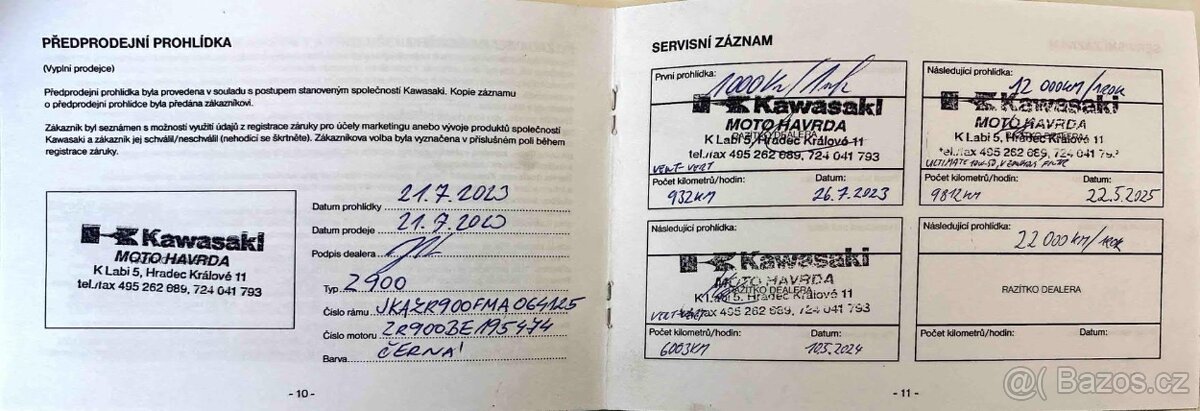 PŘEDPRODEJNÍ PROHLÍDKA
(Vyplní prodejce)
Předprodejní prohlídka byla provedena v souladu s postupem stanoveným společností Kawasaki. Kopie záznamu
o předprodejní prohlídce byla předána zákazníkovi.
Zákazník byl seznámen s možností využití údajů z registrace záruky pro účely marketingu anebo vývoje produktů společností
Kawasaki a zákazník jej schválil/neschválil (nehodící se škrtněte). Zákazníkova volba byla vyznačena v příslušném poli během
registrace záruky.
Kawasaki
MOTO HAVRDA
K Labi 5, Hradec Králové 11
tel./fax 495 262 689, 724 041 793
Datum prohlídky 21.7.2023
Datum prodeje 21.7.2023
Podpis dealera
Typ Z900
Číslo rámu JKAZR900FMA064125
Číslo motoru ZR900BE195474
Barva ČERNÁ
- 10 -
SERVISNÍ ZÁZNAM
První prohlídka: 1000km/1měs
Kawasaki
MOTO HAVRDA
RAZÍTKO DEALERA
K Labi 5, Hradec Králové 11
tel./fax 495 262 689, 724 041 793
VENT-VERT
Počet kilometrů/hodin: Datum:
932KM 26.7.2023
Následující prohlídka: 12 000KM/1ROK
Kawasaki
MOTO HAVRDA
RAZÍTKO DEALERA
K Labi 5, Hradec Králové 11
tel./fax 495 262 689, 724 041 793
ULTIMATE 10W-50,
Počet kilometrů/hodin: Datum:
9812KM 22.5.2025
Následující prohlídka:
Kawasaki
MOTO HAVRDA
RAZÍTKO DEALERA
K Labi 5, Hradec Králové 11
tel./fax 495 262 689, 724 041 793
Počet kilometrů/hodin: Datum:
6003KM 10.5.2024
Následující prohlídka: 22 000KM/1ROK
RAZÍTKO DEALERA
Počet kilometrů/hodin: Datum:
- 11 -
@( Bazos.cz